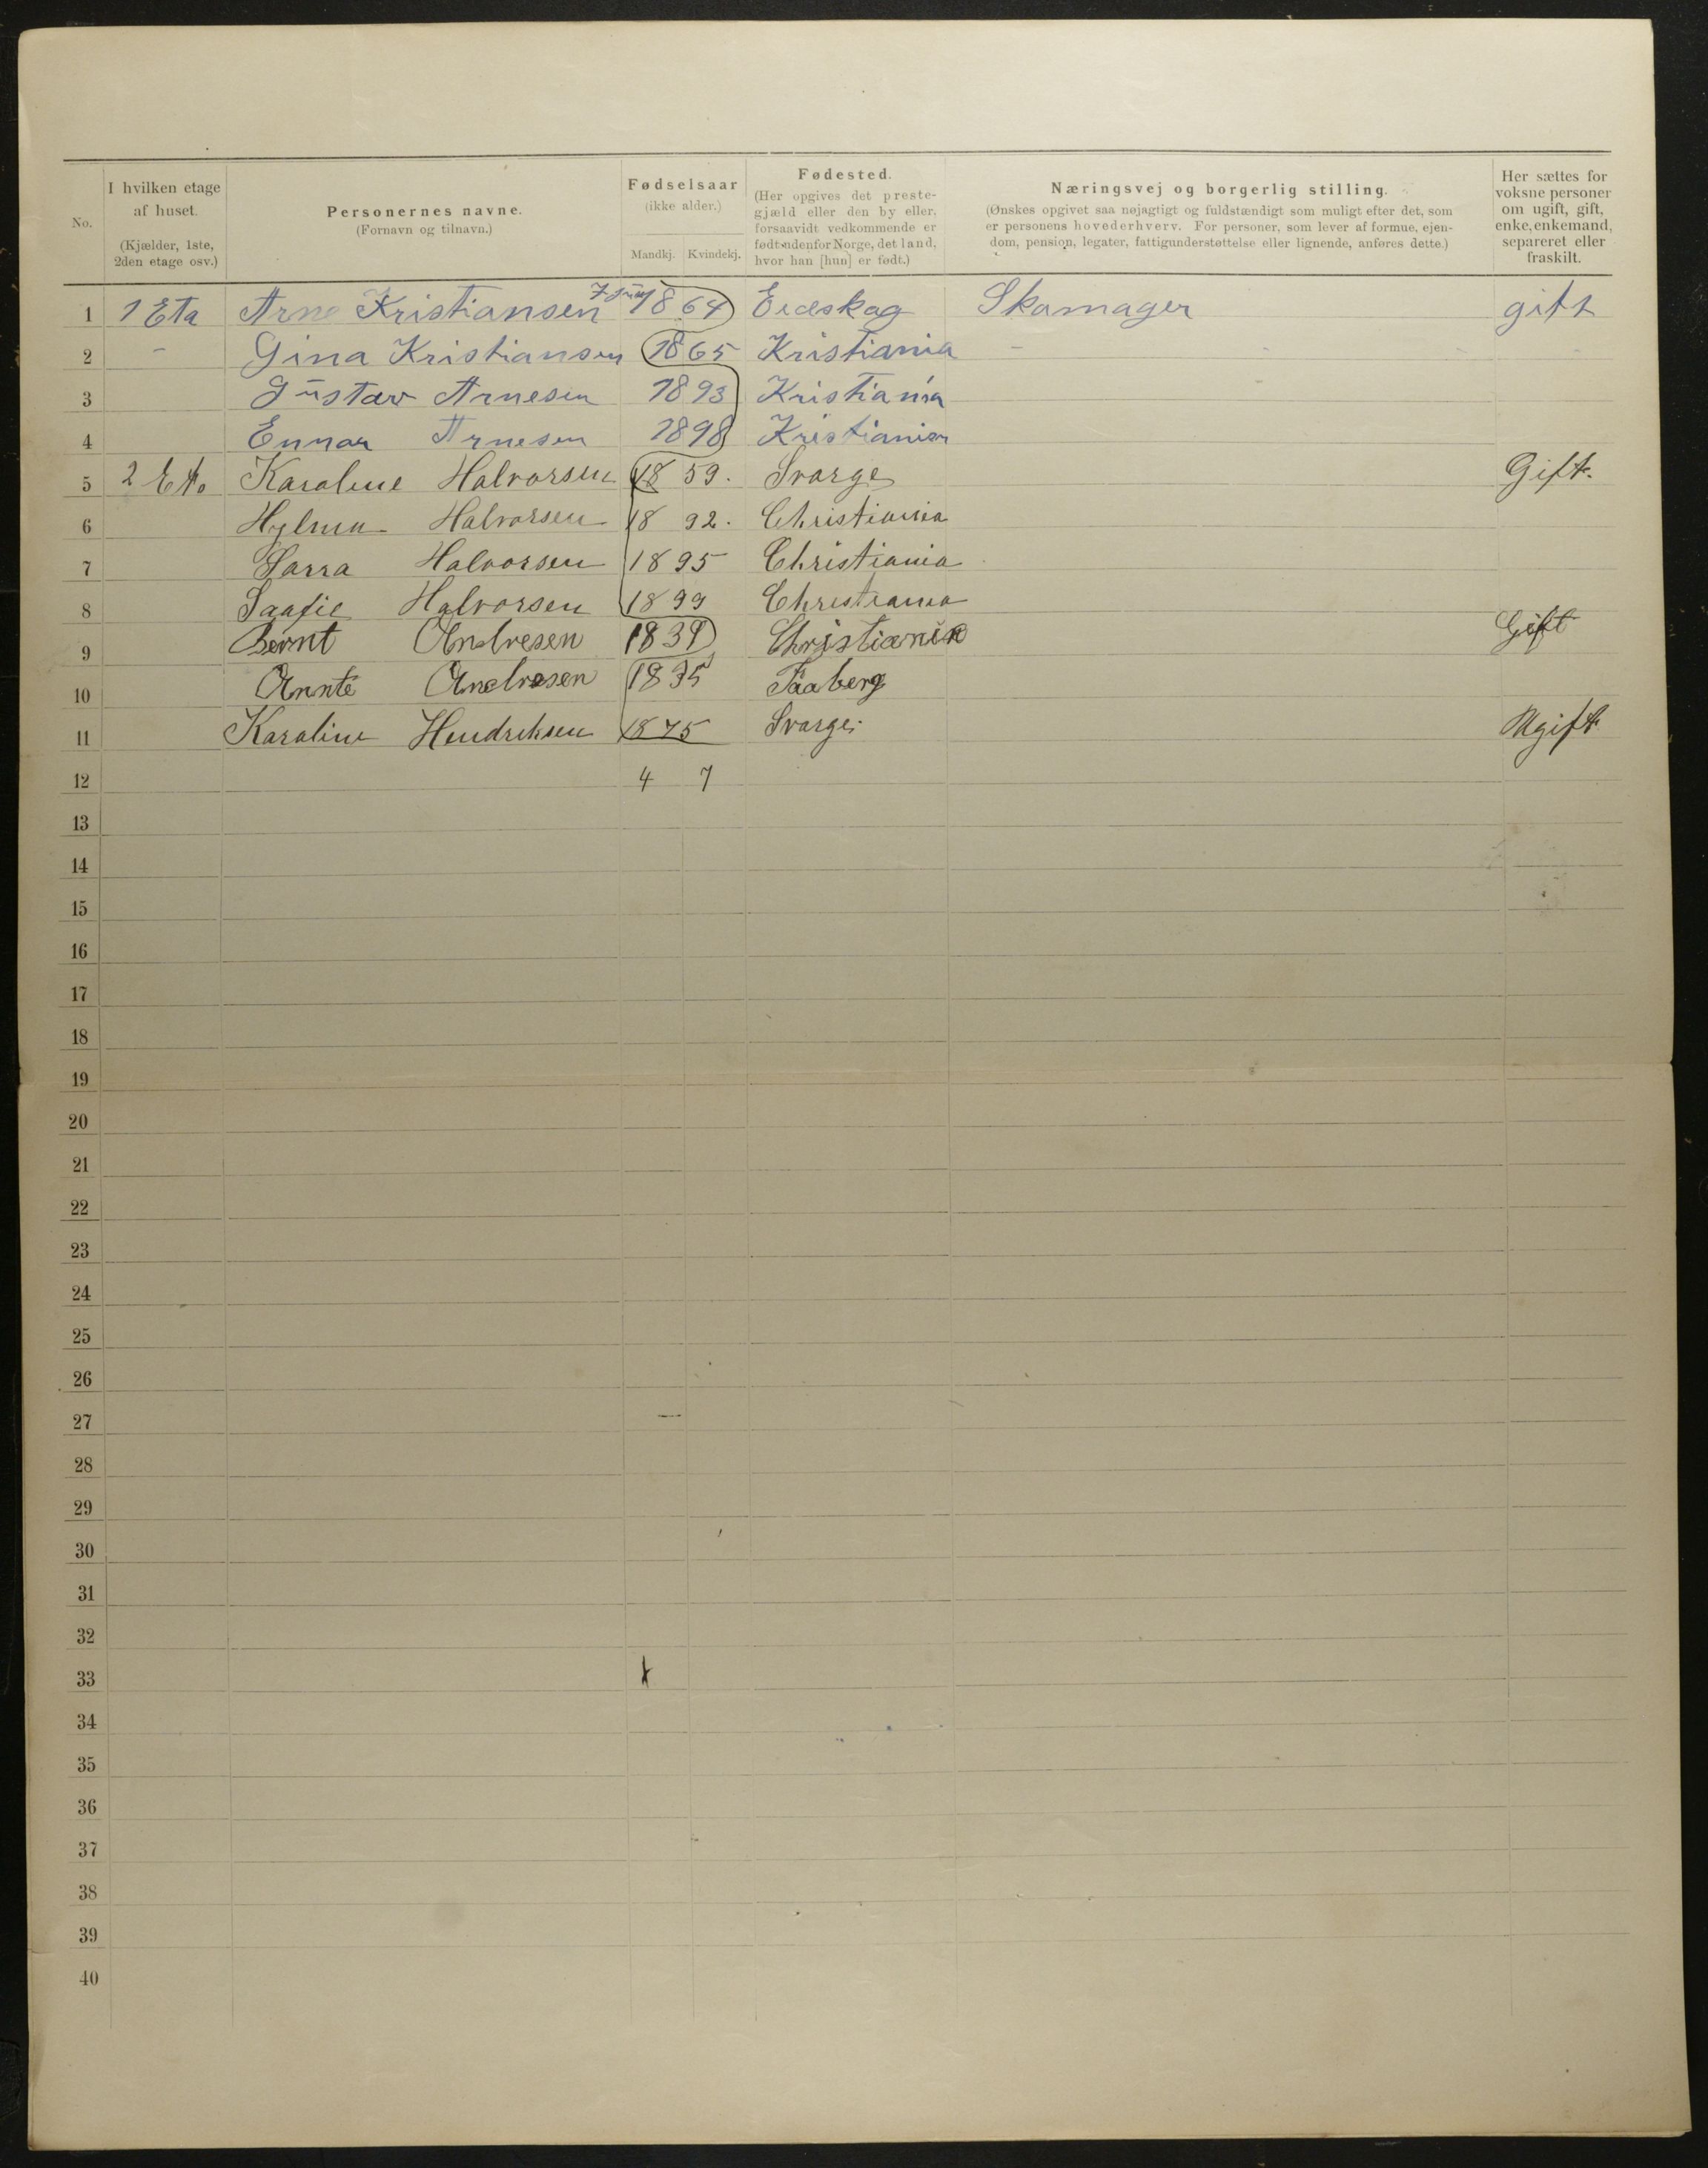 No.
I hvilken etage af huset.
(Kjælder, 1ste, 2den etage osv.)
Personernes navne.
(Fornavn og tilnavn.)
Fødselsaar
(ikke alder.)
Mandkj. Kvindekj.
Fødested.
(Her opgives det prestegjæld eller den by eller, forsaavidt vedkommende er født udenfor Norge, det land, hvor han [hun] er født.)
Næringsvej og borgerlig stilling.
(Ønskes opgivet saa nøjagtigt og fuldstændigt som muligt efter det, som er personens hovederhverv. For personer, som lever af formue, ejendom, pension, legater, fattigunderstøttelse eller lignende, anføres dette.)
Her sættes for voksne personer om ugift, gift, enke, enkemand, separeret eller fraskilt.
1 1 Eta Arne Kristiansen 1864 Eidskog Skomager gift
2 - Gina Kristiansen 1865 Kristiania -
3 Gustav Arnesen 1893 Kristiania
4 Ennar Arnesen 1898 Kristiania
5 2 Eta Karoline Halvorsen 1859. Svarge Gift.
6 Hylma Halvorsen 1892. Christiania
7 Sarra Halvorsen 1895 Christiania
8 Saafie Halvorsen 1899 Christiania
9 Bernt Andresen 1839 Christiania Gift
10 Annte Andresen 1835 Faaberg
11 Karaline Hendriksen 1875 Svarge. Ugift
12 4 7
13
14
15
16
17
18
19
20
21
22
23
24
25
26
27
28
29
30
31
32
33
34
35
36
37
38
39
40